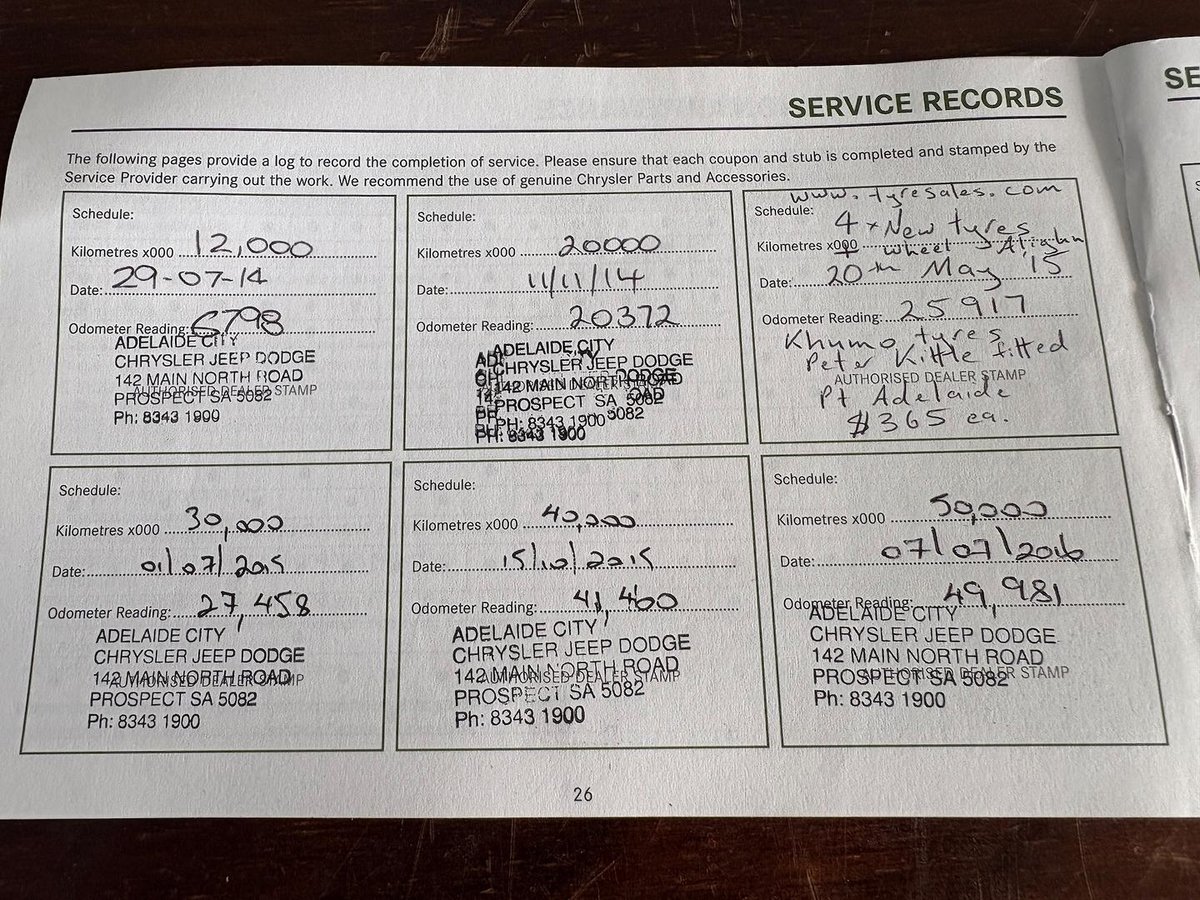 SERVICE RECORDS
SE
The following pages provide a log to record the completion of service. Please ensure that each coupon and stub is completed and stamped by the
Service Provider carrying out the work. We recommend the use of genuine Chrysler Parts and Accessories.
Schedule:
Kilometres x000 12,000
Date: 29-07-14
Odometer Reading: 6798
ADELAIDE CITY
CHRYSLER JEEP DODGE
142 MAIN NORTH ROAD
AUTHORISED DEALER STAMP
PROSPECT SA 5082
Ph: 8343 1900
Schedule:
Kilometres x000 20000
Date: 11/11/14
Odometer Reading: 20372
ADELAIDE CITY
CHRYSLER JEEP DODGE
142 MAIN NORTH ROAD
PROSPECT SA 5082
PH: 8343 1900
PH: 8343 1900
www.tyresales.com
Schedule: 4 x New tyres
Kilometres x000 + wheel Alighn
Date: 20th May 15
Odometer Reading: 25917
Khumo tyres
Peter Kittle fitted
AUTHORISED DEALER STAMP
Pt Adelaide
$365 ea.
Schedule:
Kilometres x000 30,000
Date: 01/07/2015
Odometer Reading: 27,458
ADELAIDE CITY
CHRYSLER JEEP DODGE
142 MAIN NORTH ROAD
AUTHORISED DEALER STAMP
PROSPECT SA 5082
Ph: 8343 1900
Schedule:
Kilometres x000 40,000
Date: 15/10/2015
Odometer Reading: 41,460
ADELAIDE CITY
CHRYSLER JEEP DODGE
142 MAIN NORTH ROAD
AUTHORISED DEALER STAMP
PROSPECT SA 5082
Ph: 8343 1900
Schedule:
Kilometres x000 50,000
Date: 07/07/2016
Odometer Reading: 49,981
ADELAIDE CITY
CHRYSLER JEEP DODGE
142 MAIN NORTH ROAD
AUTHORISED DEALER STAMP
PROSPECT SA 5082
Ph: 8343 1900
26